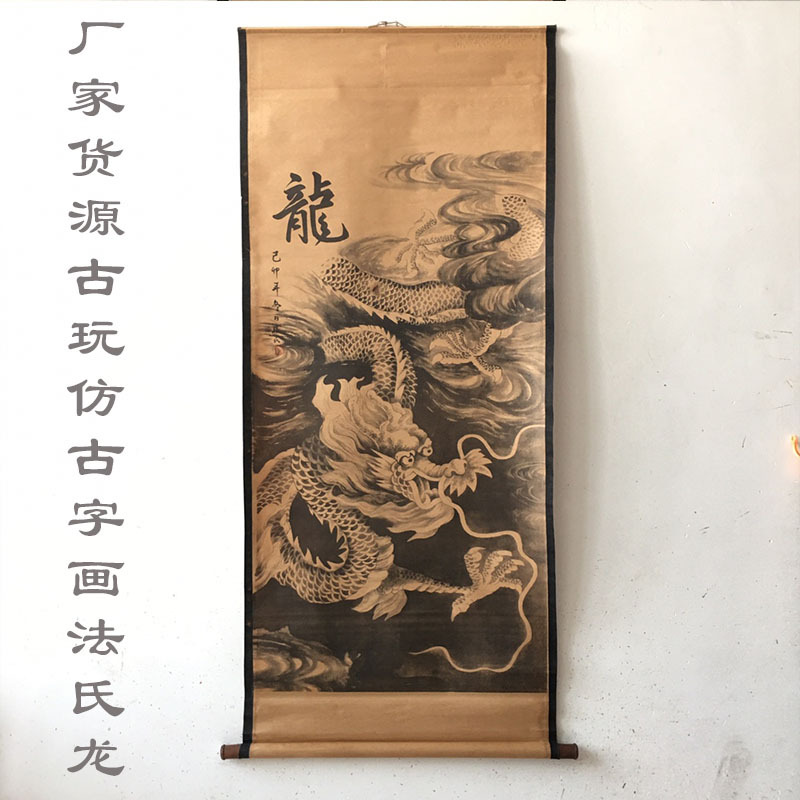 厂家货源古玩仿古字画法氏龙
龍
己卯年冬月